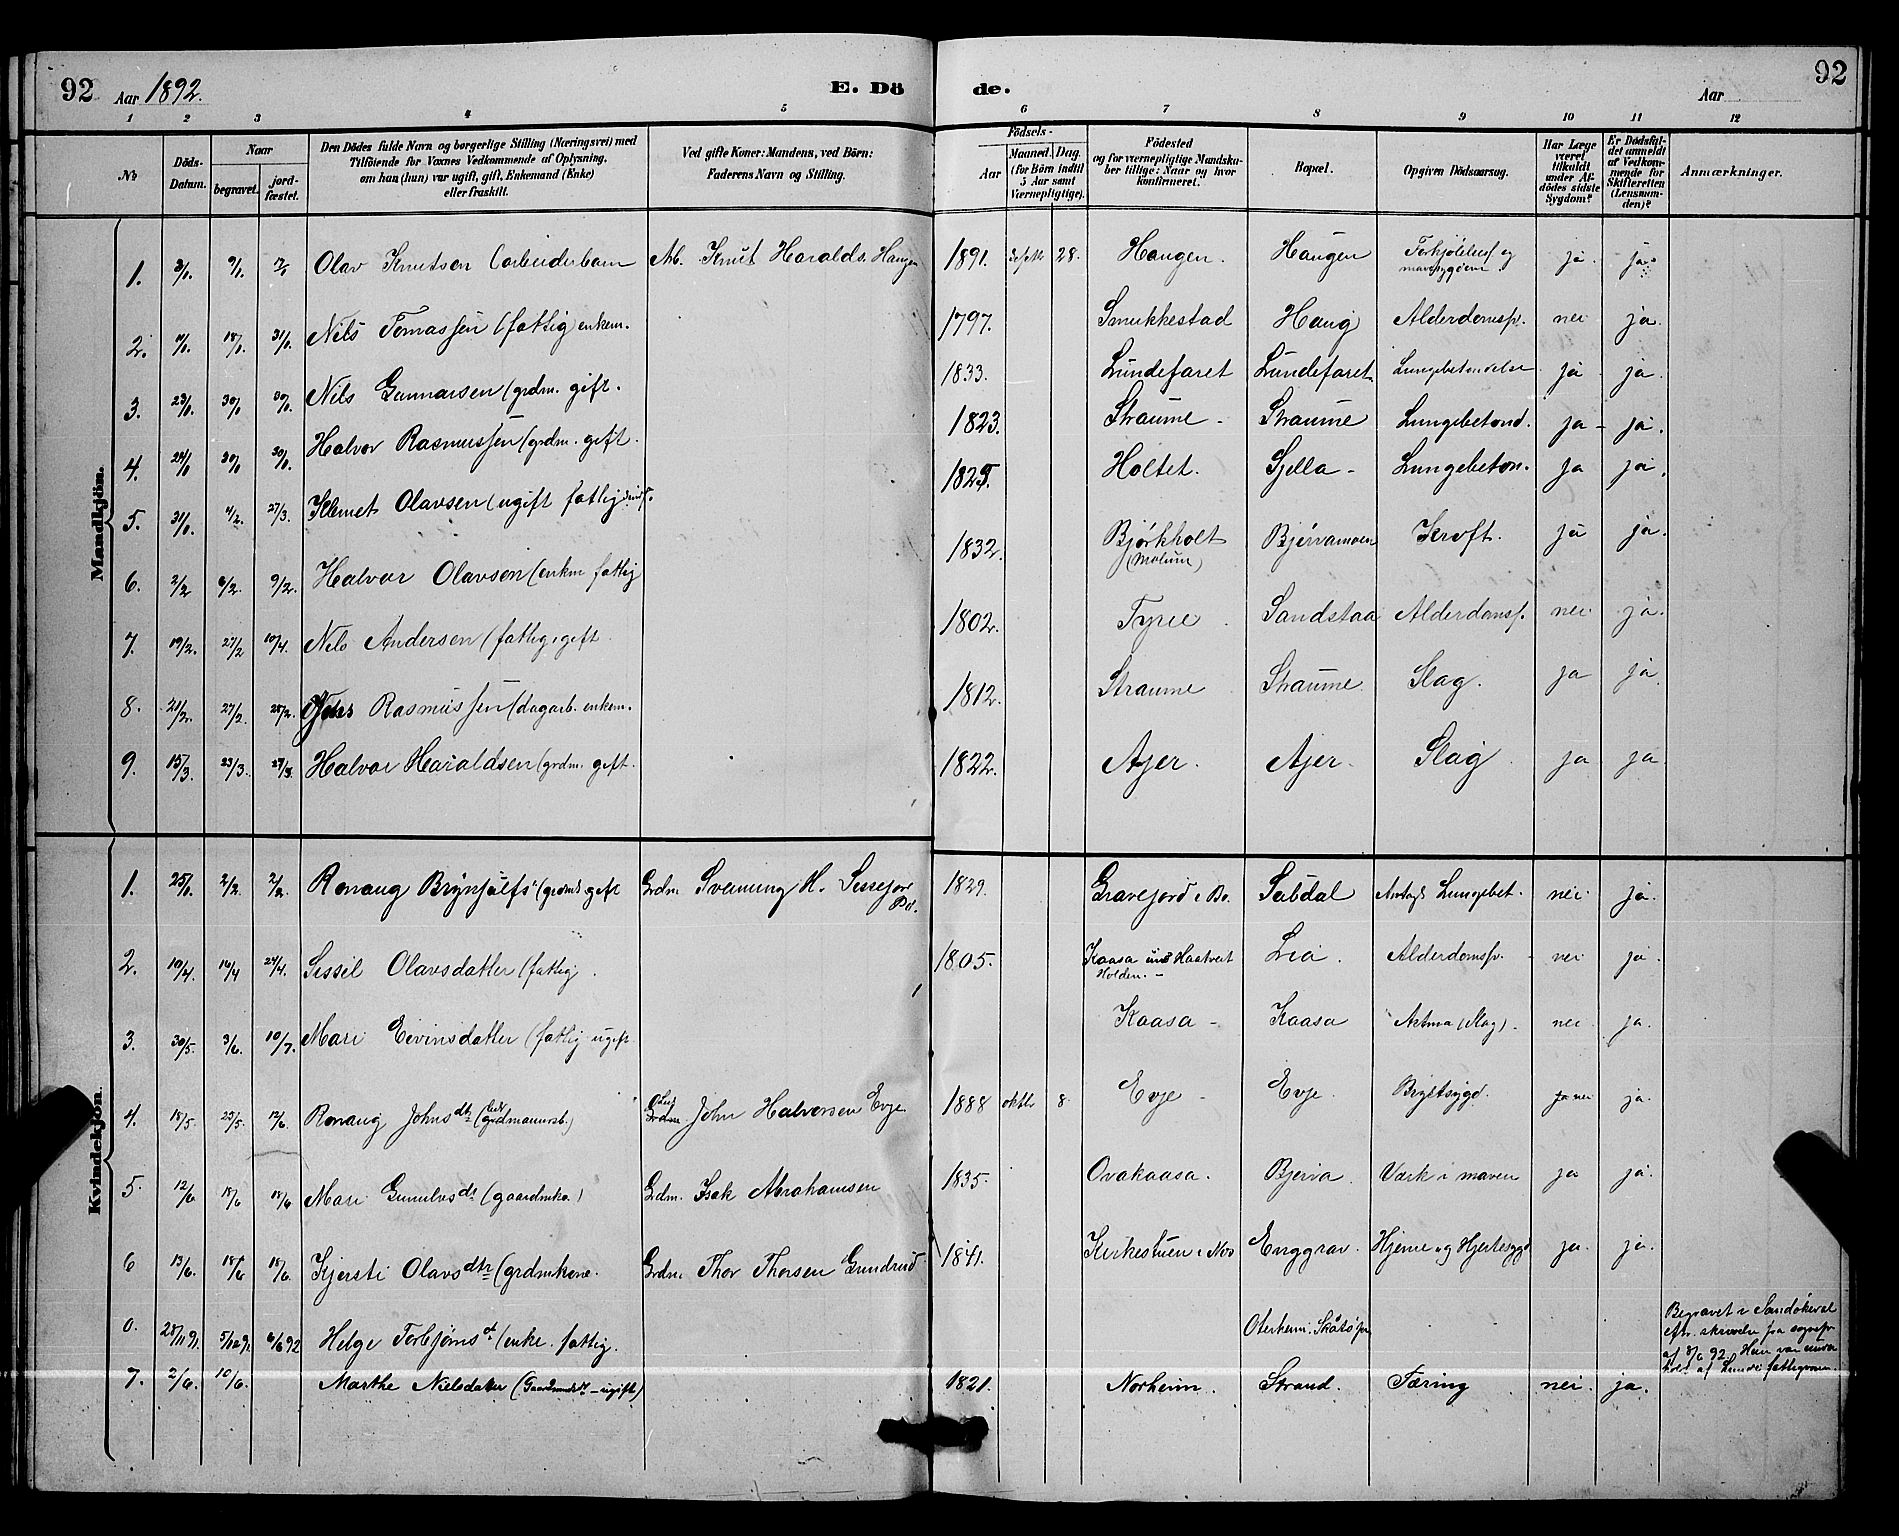 92 Aar 1892. E. Dö
de. Aar 92
1 2 3 4 5 6 7 8 9 10 11 12
No
Döds-Datum.
Naar
begravet. jord-fæstet.
Den Dödes fulde Navn og borgerlige Stilling (Næringsvei) med
Tilföiende for Voxnes Vedkommende af Oplysning,
om han (hun) var ugift, gift, Enkemand (Enke)
eller fraskilt.
Ved gifte Koner: Mandens, ved Börn:
Faderens Navn og Stilling.
Födsels-
Aar
Maaned. Dag.
(for Börn indtil
5 Aar samt
Værnepligtige).
Födested
og for værnepligtige Mandska-
ber tillige: Naar og hvor
konfirmeret.
Bopæl.
Opgiven Dödsaarsag.
Har Læge
været
tilkaldt
under Af-
dödes sidste
Sygdom?
Er Dödsfal-
det anmeldt
af Vedkom-
mende for
Skifteretten
(Lensman-
den)?
Anmærkninger.
Mandkjön.
1. 3/1. 9/1. Olav Knutsen (arbeiderbarn Arb. Knut Haralds. Haugen 1891. Septbr 28. Haugen. Haugen Forkjølelse og mavesygdom ja ja.
2. 18/1. 31/1. Nils Tomassen (fattig enkem. 1797. Smukkestad Haug Alderdomssv. nei ja.
3. 23/1. 30/1. 30/1. Nils Gunnarsen (grdm. gift. 1833. Lundefaret Lundefaret Lungebetændelse ja ja.
4. 24/1. 30/1. 30/1. Halvor Rasmussen (grdm. gift. 1823. Straume - Straume Lungebetænd. ja - ja.
5. 31/1. 4/2. 27/3. Klemet Olavsen (ugift fattig 1825. Holtet. Sjella - Lungebeten. ja ja.
6. 2/2 6/2. 9/2. Halvor Olavsen (enkm fattig 1832. Bjørkholt (Melum) Bjervamoen Kræft. ja ja.
7. 19/2. 27/2 10/4. Nils Andersen (fattig, gift 1802. Tyrie Sandstaa Alderdomsf. nei ja.
8. 21/2. 27/2. 28/2. Rasmussen (dagarb. enkem. 1812. Straume Straume Slag. ja ja
9. 15/3. 23/3. 27/3. Halvor Haraldsen (grdm. gift. 1822. Ajer. Ajer. Slag ja ja
Kvindekjön.
1. 25/1. 2/2. 2/2. Ronaug Brynjulfs. (grdmd gift Grdm Sveinung H. Sissejore Bø. 1829. Gravejord i Bø. Sabdal Lungebet. nei ja.
2. 10/4. 16/4 24/4. Sissil Olavsdatter (fattig. 1805. Kaasa und Haatveit Holden. - Lia. Alderdomsv. - nei ja.
3. 30/5. 3/6. 10/7. Mari Eivinsdatter (fattig ugift Kaasa - Kaasa Astma (Slag). nei ja.
4. 18/5. 23/5. 12/6. Ronaug Johnsdtr (grdmannsb.) Grdm John Halvorsen Evje 1888 oktbr 8. Evje - Evje. Brystsygd. ja nei ja.
5. 12/6 18/6 18/6 Mari Gunulvsdt (gaardmko.) Grdm. Isak Abrahamsen 1835. Ovakaasa. Bjerva. Værk i maven ja ja.
6 13/6. 18/6 18/6. Kjersti Olavsdtr (grdmkone. Grdm. Thor Thorsen Gundrud 1841. Kirkestuen i Nes Enggrav. Hjerne og Hjertesygd ja. ja.
0. 28/11 91. 5/12 91 6/6 92 Helge Torbjørnsdt. (enke. fattig. Oterheim. Skåtöy Begravet i Sandökeval
eftr. skrivelse fra sognepr.
af 8/6 92. Hun var under
hold af Lunde fattigvæsen.
7. 2/6. 10/6. Marthe Nielsdatter (Gaardmandsdt. - ugift) 1821. Norheim. Strand. Tæring nei. ja.